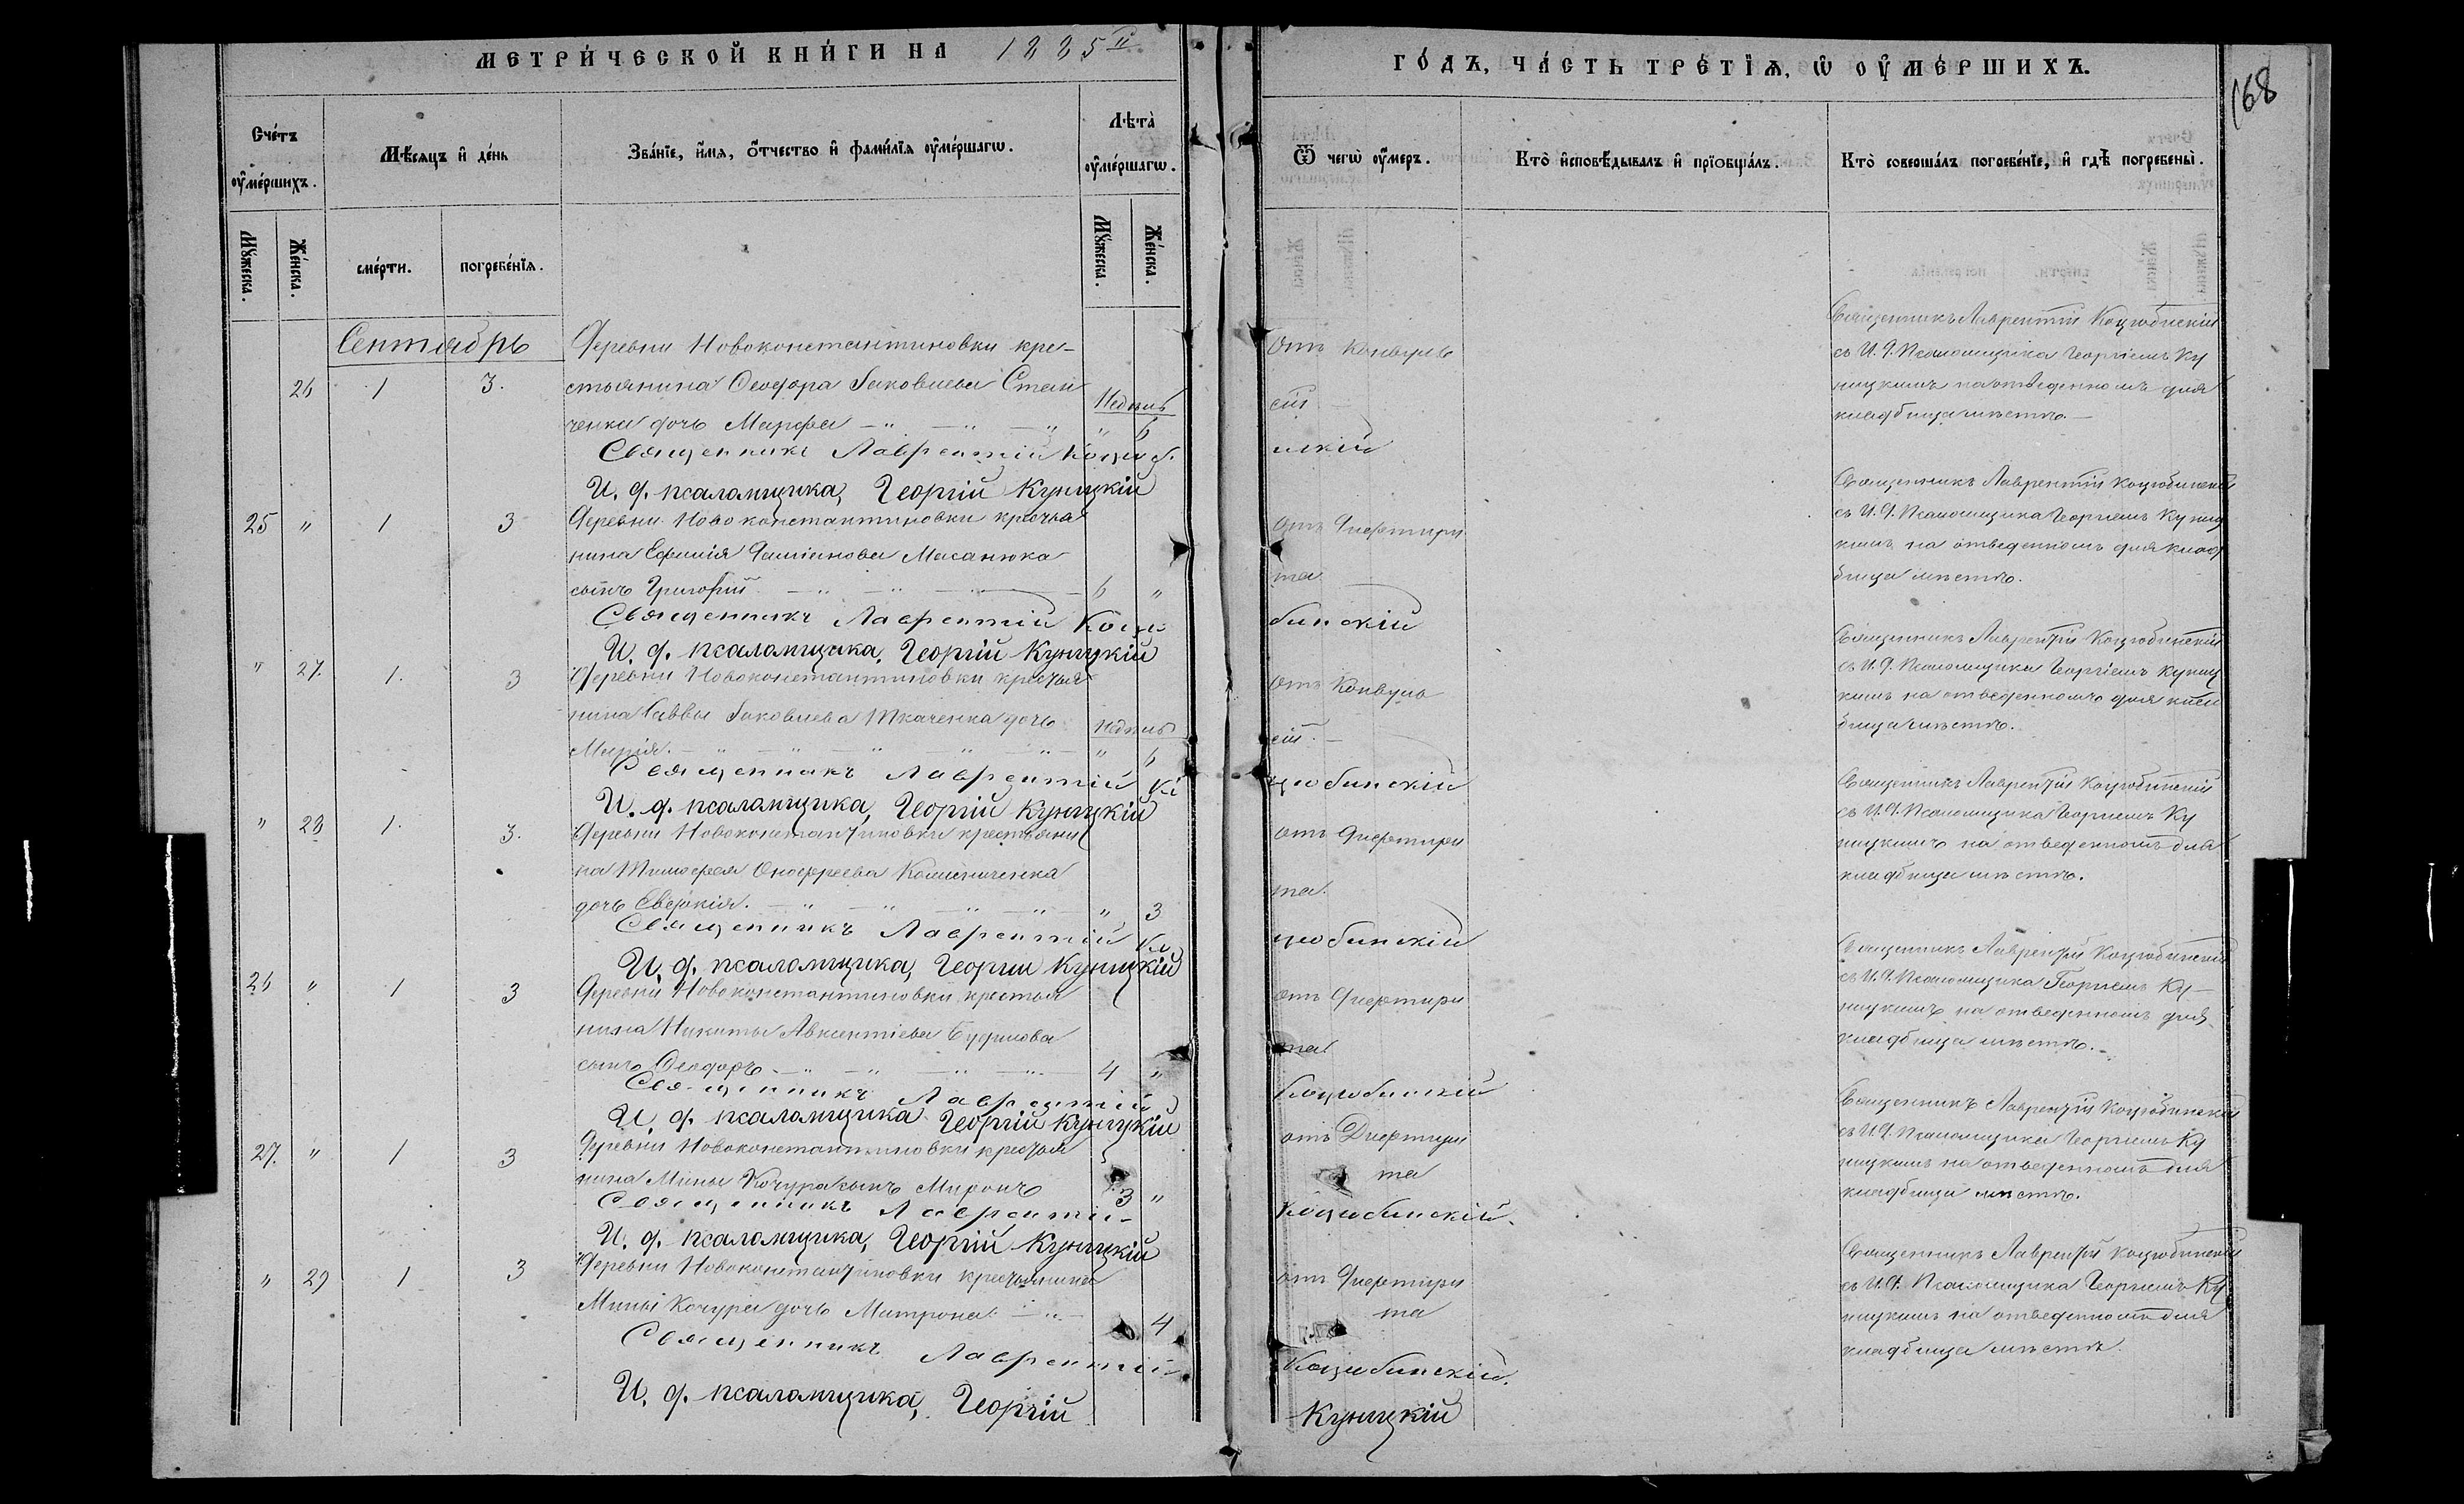 МЕТРИ́ЧЕСКОЙ КНИ́ГИ НА 1885 й
ГО́ДЪ, ЧА́СТЬ ТРЕ́ТІѦ, Ѡ ОУ҆МЕ́РШИХЪ.
168
Сче́тъ оу҆ме́ршихъ.
Мѣ́сѧцъ и҆ де́нь
Зва́нїе, и҆́мѧ, ѻ҆́тчество и҆ фами́лїѧ оу҆ме́ршагѡ.
Лѣ́та оу҆ме́ршагѡ.
Ѿ чегѡ̀ оу҆́меръ.
Кто̀ и҆сповѣ́дывалъ и҆ прїѡбща́лъ.
Кто̀ соверша́лъ погребе́нїе, и҆ гдѣ̀ погребены̀.
Мꙋ́жеска.
Же́нска.
сме́рти.
погребе́нїѧ.
Мꙋ́жеска.
Же́нска.
Сентябрь
Деревни Новоконстантиновки кре-
26 1 3. стьянина Феодора Яковлева Стец
Недѣль
ченка дочь Марфа — " — " — " " 6
отъ Конвуль
сій
Священникъ Лаврентій Коцюбинскій
съ И. Д. Псаломщика Георгіемъ Ку
ницкимъ на отведенномъ для
кладбища мѣстѣ. —
Священникъ Лаврентій Коцюб.
инскій
И. д. псаломщика, Георгій Куницкій
25 " 1 3 Деревни Новоконстантиновки крестья
нина Ефимія Даміанова Масанюка
сынъ Григорій — " — " — 6 "
отъ Дифтери
та
Священникъ Лаврентій Коцюбинскій
съ И. Д. Псаломщика Георгіемъ Куниц
кимъ на отведенномъ для клад
бища мѣстѣ.
Священникъ Лаврентій Коцю
бинскій
И. д. псаломщика, Георгій Куницкій
" 27. 1. 3 Деревни Новоконстантиновки крестья
нина Саввы Яковлева Ткаченка дочь
недѣль
Марія. — " — " — " — " — " 6
отъ Конвуль
сій. —
Священникъ Лаврентій Коцюбинскій
съ И. Д. Псаломщика Георгіемъ Куниц
кимъ на отведенномъ для клад
бища мѣстѣ.
Священникъ Лаврентій Ко
цюбинскій
И. д. псаломщика, Георгій Куницкій
" 28 1. 3. Деревни Новоконстантиновки крестьяни
на Тимофея Онофреева
дочь Евдокія. — " — " — " — " " 3
отъ Дифтери
та.
Священникъ Лаврентій Коцюбинскій
съ И. Д. Псаломщика Георгіемъ Ку
ницкимъ на отведенномъ для
кладбища мѣстѣ.
Священникъ Лаврентій Ко
цюбинскій
И. д. псаломщика, Георгій Куницкій
26 " 1 3 Деревни Новоконстантиновки крестья
нина Никиты Авксентіева
сынъ Феодоръ — " — " — " — " 4 "
отъ Дифтери
та
Священникъ Лаврентій Коцюбинскій
съ И. Д. Псаломщика Георгіемъ Ку—
ницкимъ на отведенномъ для
кладбища мѣстѣ. —
Священникъ Лаврентій
Коцюбинскій
И. д. псаломщика Георгій Куницкій
27. " 1 3 Деревни Новоконстантиновки крестья
нина Мины Кочура сынъ Миронъ 3 "
отъ Дифтери
та
Священникъ Лаврентій Коцюбинскій
съ И. Д. Псаломщика Георгіемъ Ку
ницкимъ на отведенномъ для
кладбища мѣстѣ.
Священникъ Лаврентій
Коцюбинскій.
И. д. псаломщика, Георгій Куницкій
" 29 1 3 Деревни Новоконстантиновки крестьянина
Мины Кочура дочь Матрона — " — 4
отъ Дифтери
та
Священникъ Лаврентій Коцюбинскій
съ И. Д. Псаломщика Георгіемъ Ку
ницкимъ на отведенномъ для
кладбища мѣстѣ.
Священникъ Лаврентій
Коцюбинскій.
И. д. псаломщика, Георгій
Куницкій